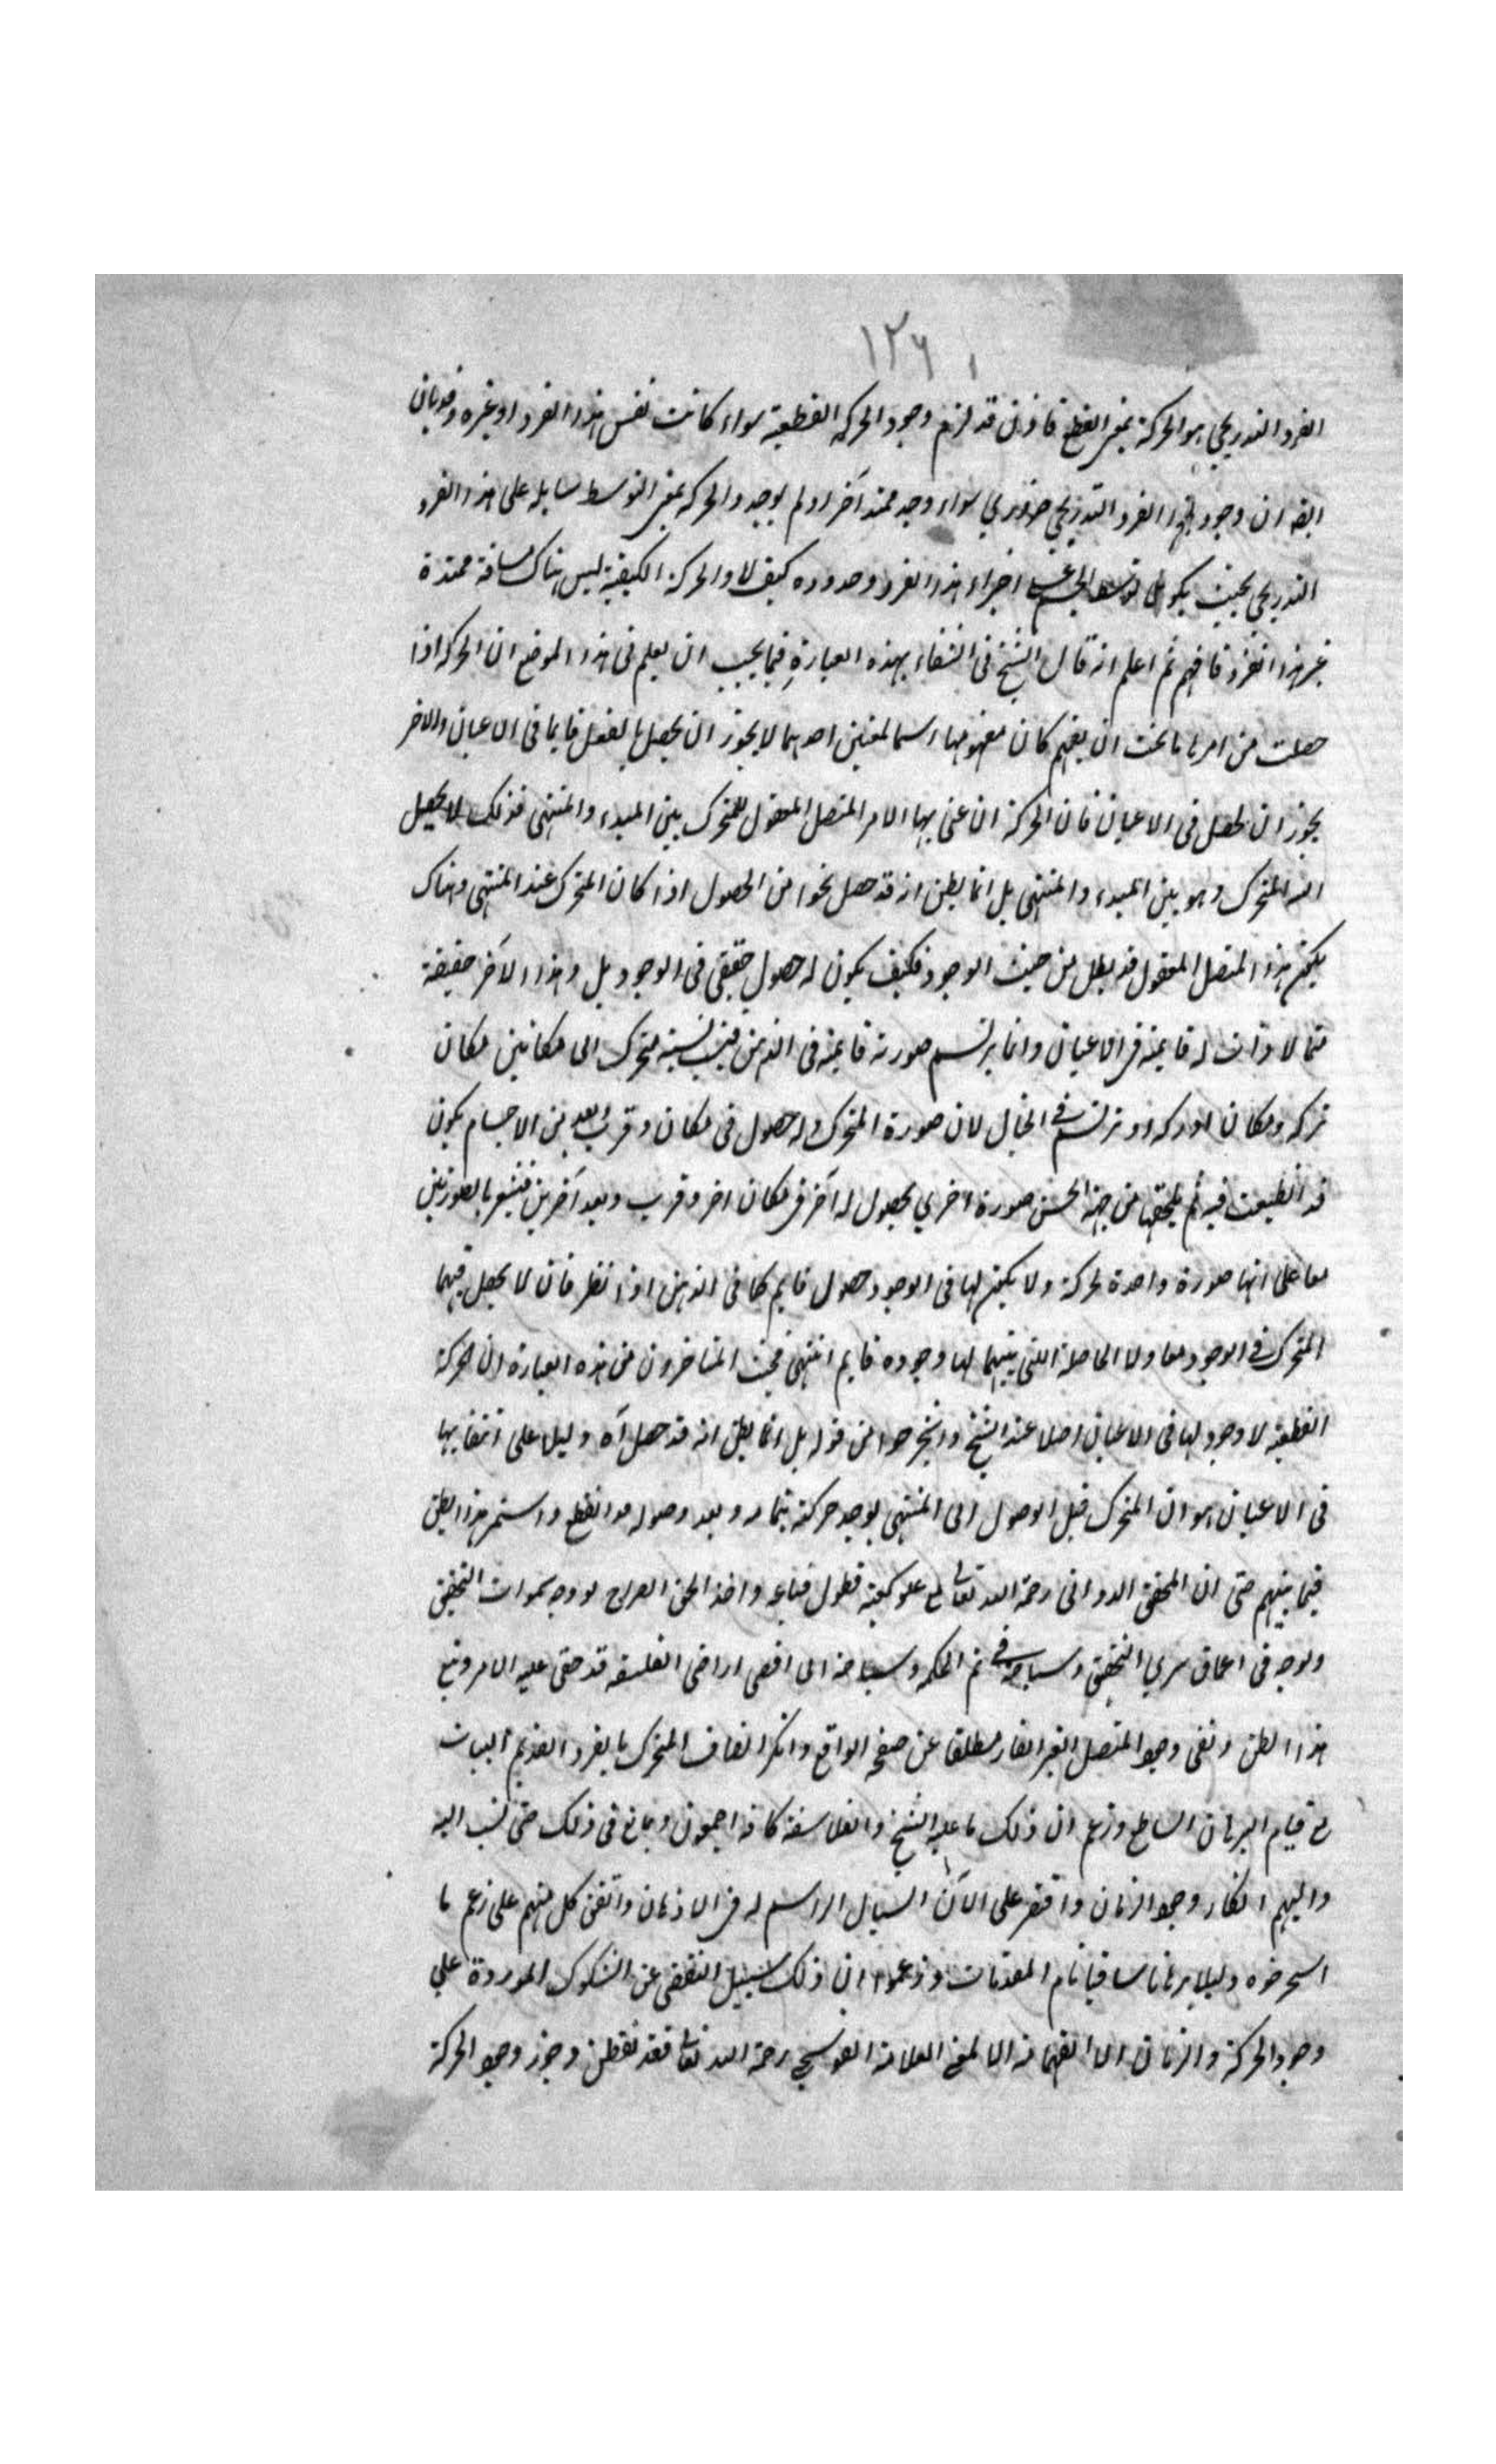 ١٢٦
الفرد التدريجي هو الحركة بمعنى القطع فاذن قد لزم وجود الحركه القطعية سواء كانت نفس هذا الفرد او غيره وقد بان
ايضا ان وجود هذا الفرد التدريجي ضروري سواء وجد ممتد آخر او لم يوجد والحركه بمعنى التوسط سايله على هذا الفرد
التدريجي بحيث يكون لها توسط الجسم اجزاء هذا الفرد وحدوده كيف لا والحركة الكيفية ليس هناك مسافة ممتدة
غير هذا الفرد فافهم ثم اعلم انه قال الشيخ في الشفاء بهذه العبارة فيما يجب ان يعلم في هذا الموضع ان الحركه اذا
حصلت من امرها ما يجب ان يفهم كان مفهومها اسما لمعنيين احدهما لا يجوز ان يحصل بالفعل قايما في الاعيان والاخر
يجوز ان يحصل في الاعيان فان الحركة ان عنى بها الامر المتصل المعقول للمتحرك بين المبدء والمنتهى فذلك لا يحصل
البته للمتحرك وهو بين المبدء والمنتهى بل انما يظن انه قد حصل نحوا من الحصول اذا كان المتحرك عند المنتهى وهناك
يكون هذا المتصل المعقول قد بطل من حيث الوجود فكيف يكون له حصول حقيقي في الوجود بل وهذا الآخر حقيقة
مما لا ذات له قايمة في الاعيان وانما يرتسم صورته قايمة في الذهن بسبب نسبة متحرك الى مكانين مكان
تركه ومكان ادركه او يرتسم في الخيال لان صورة المتحرك وله حصول في مكان وقرب وبعد من الاجسام يكون
قد انطبعت فيه ثم يلحقها من جهة الحس صورة اخري بحصول له آخر في مكان اخر وقرب وبعد آخرين فيشعر بالصورتين
معا على انها صورة واحدة لحركة ولا يكون لها في الوجود حصول قايم كما في الذهن اذ الطرفان لا يحصل فيهما
المتحرك في الوجود معا ولا الحالة التي بينهما لها وجود قايم انتهى المتاخرون من هذه العبارة ان الحركة
القطعية لا وجود لها في الاعيان اصلا عند الشيخ واستخرجوا من قوله بل انما يظن انه قد حصل آه دليلا على انتفايها
في الاعيان هو ان المتحرك قبل الوصول الى المنتهى لم يوجد حركته بتمامه وبعد وصوله قد انقطع واستمر هذا الظن
فيما بينهم حتى ان المحقق الدواني رحمة الله تعالى مع علو كعبه وطول باعه واخذ الحق
في اعماق التحقيق وسباحته في يم الحكمه وسياحته الى اقصى اراضي الفلسفه قد خفي عليه الامر
هذا الظن ونفى وجود المتصل الغير القار مطلقا عن صفحة الواقع وانكر اتصاف المتحرك بالفرد
مع قيام البرهان الساطع وزعم ان ذلك ما عليه الشيخ والفلاسفة كافة اجمعون وبالغ في ذلك حتى نسب اليه
واليهم انكار وجود الزمان واقتصر على الآن السيال الراسم له في الاذهان واتفق كل منهم على زعم ما
استخرجوه دليلا برهانا تام المقدمات وزعموا ان ذلك سبيل التفصي عن الشكوك الموردة علي
وجود الحركة والزمان العلامة القوشجي رحمة الله تعالى فقد تفطن وجوز وجود الحركة